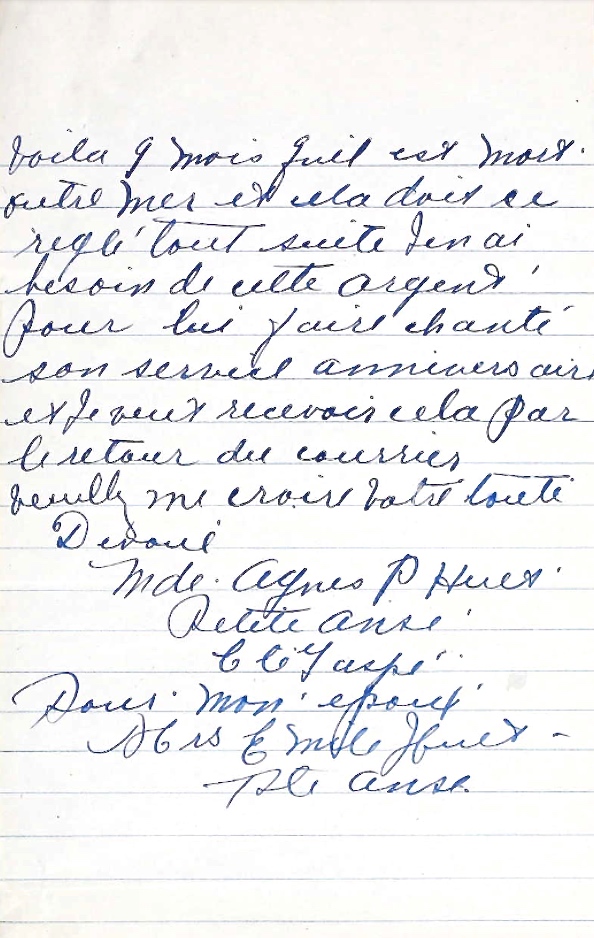 Voila 9 mois quil est mort.
outre mer et cela doit ce
reglé tout suite Jen ai
besoin de cette argent
pour lui faire chanté
son service anniversaire
et Je veut recevoir cela par
le retour du courrier
veuilly me croire votre toute
Devoué
Mde. Agnes P Huet
Petite Anse
C C Gaspé
Pour mon epoux
Mrs E mile Huet -
Pte Anse.